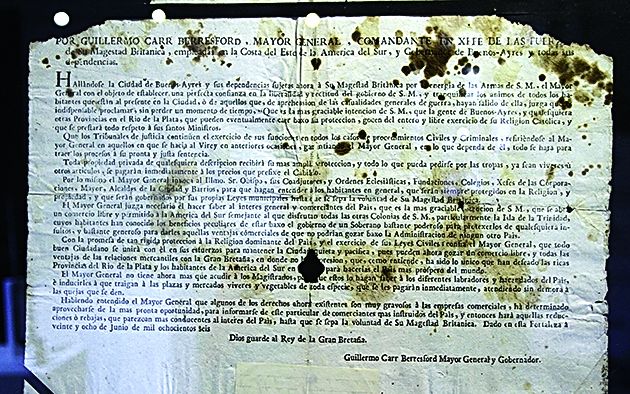 POR GUILLERMO CARR BERRESFORD, MAYOR GENERAL, COMANDANTE EN XEFE DE LAS
de Su Magestad Britanica, empleadas en la Costa del Este de la America del Sur, y Gobernador de Buenos-Ayres y todas sus
dependencias.
HAllandose la Ciudad de Buenos-Ayres y sus dependencias sujetas ahora à Su Magestad Británica por la energia de las Armas de S. M. el Mayor
General con el objeto de establecer una perfecta confianza en la liberalidad y rectitud del gobierno de S. M. y tranquilizar los animos de todos los ha-
bitantes que estan al presente en la Ciudad, ò de aquellos que, de aprehension de las casualidades generales de guerra, hayan salido de ella, juzga
indispensable proclamar, sin perder un momento de tiempo. Que es la mas graciable intencion de S. M. que la gente de Buenos-Ayres, y qualesquiera
otras Provincias en el Rio de la Plata, que pueden eventualmente caer baxo su proteccion, gocen del entero y libre exercicio de su Religion Catòlica, y
que se prestará todo respeto à sus santos Ministros.
Que los Tribunales de justicia continuen el exercicio de sus funciones en todos los casos de procedimientos Civiles y Criminales, refiriendose al Ma-
yor General en aquellos en que se hacia al Virey en anteriores ocasiones, el Mayor General, por lo que depende de él, todo se hará para
traer los procesos á su pronta y justa sentencia.
Toda propiedad privada de qualquiera descripcion recibirá su mas amplia proteccion, y todo lo que pueda pedirse por las tropas, ya sean viveres ú
otros articulos, se pagarán inmediatamente à los precios que prefixe el Cabildo.
Por lo mismo el Mayor General llama al Illmo. Sr. Obispo, sus Coadjutores, y Ordenes Eclesiásticas, Fundaciones, Colegios, Xefes de las Corpora-
ciones, Mayor, Alcaldes de la Ciudad y Barrios, para que hagan entender à los habitantes en general, que serán siempre protegidos en la Religion, y
propiedad, y que serán gobernados por sus propias Leyes municipales hasta q se sepa la voluntad de Su Magestad Británica.
El Mayor General juzga necesario el hacer saber al interés general y comerciantes del Pais, que es la mas graciable intencion de S. M., que se abra
un comercio libre y permitido à la America del Sur semejante al que disfrutan todas las otras Colonias de S. M., particularmente la Isla de la Trinidad,
cuyos habitantes han conocido los beneficios peculiares de estar baxo el gobierno de un Soberano bastante poderoso para protegerlos de qualquiera in-
sultos, y bastante generoso para darles aquellas ventajas comerciales de que no podrian gozar baxo la Administracion de ningun otro Pais.
Con la promesa de tan rigida proteccion à la Religion dominante del Pais, y el exercicio de sus Leyes Civiles confia el Mayor General, que todo
buen Ciudadano se unirá con el en sus esfuerzos para mantener la Ciudad quieta y pacifica, pues pueden ahora gozar un comercio libre, y todas las
ventajas de las relaciones mercantiles con la Gran Bretaña, en donde no hay opresion, y que, como entiende, ha sido lo unico que han deseado las ricas
Provincias del Rio de la Plata y los habitantes de la America del Sur en general para hacerlas el Pais mas próspero del mundo.
El Mayor General no tiene ahora mas que acudir à los Magistrados, para que estos lo hagan saber à los diferentes labradores y hacendados del Pais,
è inducirles à que traigan à las plazas y mercados víveres y vegetables de toda especie, que se les pagarán inmediatamente, atendiendo sin demora à
las quejas que se den.
Habiendo entendido el Mayor General que algunos de los derechos ahora existentes son muy gravosos à las empresas comerciales, ha determinado
aprovecharse de la mas pronta oportunidad, para informarse de este particular de comerciantes mas instruidos del Pais, y entonces hará aquellas reduc-
ciones ò rebajas, que parezcan mas conducentes al interes del Pais, hasta que se sepa la voluntad de Su Magestad Britanica. Dado en esta Fortaleza à
veinte y ocho de Junio de mil ochocientos seis
Dios guarde al Rey de la Gran Bretaña.
Guillermo Carr Berresford Mayor General y Gobernador.